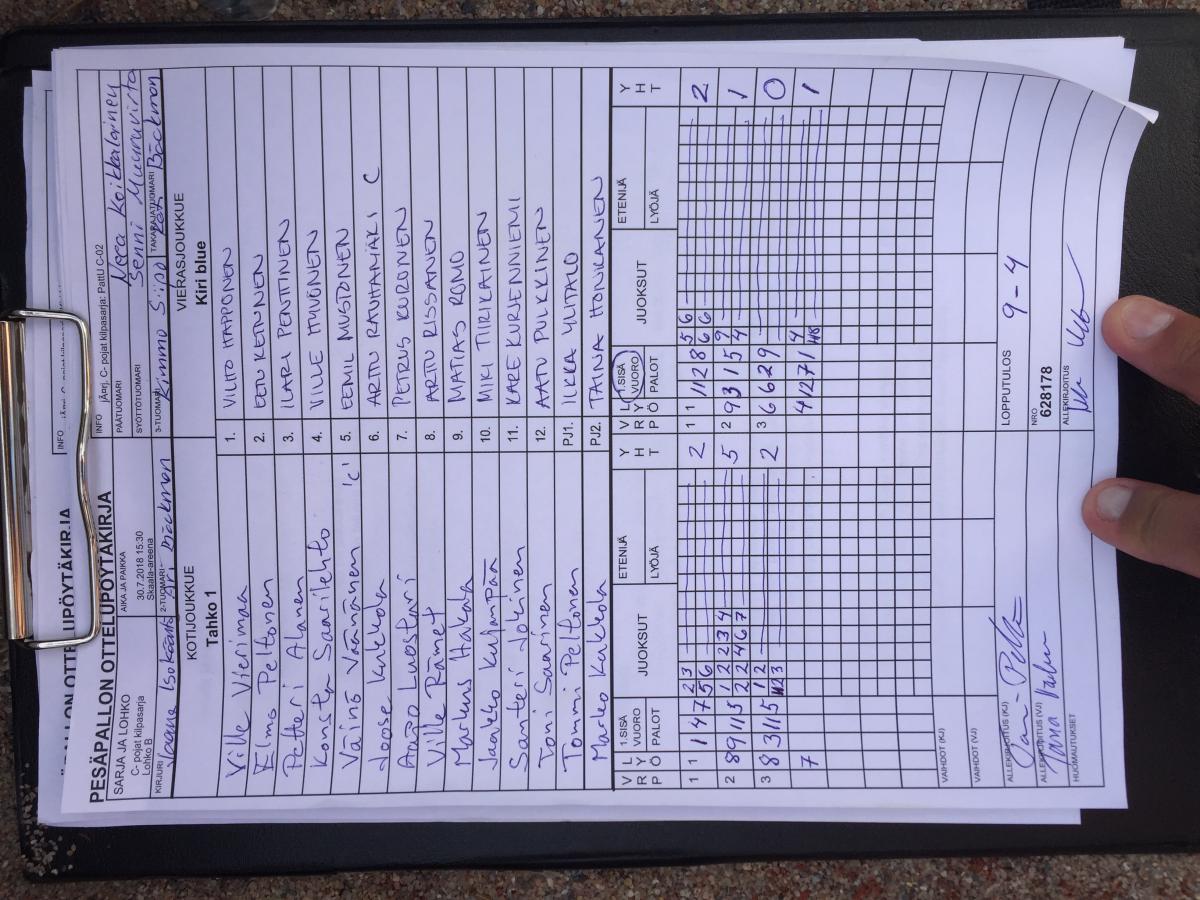 PESÄPALLON OTTELUPÖYTÄKIRJA
SARJA JA LOHKO
C- pojat kilpasarja
Lohko B
AIKA JA PAIKKA
30.7.2018 15:30
Skaala-areena
INFO jÄrj. C- pojat kilpasarja: PattU C-02
PÄÄTUOMARI Neea Koikkalainen
SYÖTTÖTUOMARI Senni Muuruvirta
KIRJURI
2-TUOMARI Bäckman
3-TUOMARI Kimmo Siipo
TAKARAJATUOMARI Bäckman
KOTIJOUKKUE
Tahko 1
VIERASJOUKKUE
Kiri blue
Ville Vierimaa 1. VILITO HAPPONEN
Elmo Peltonen 2. EETU KETTUNEN
Petteri Alanen 3. ILARI PENTTINEN
Konsta Saarilehto 4. VILLE HYVÖNEN
Väinö Väänänen 'c' 5. EEMIL MUSTONEN
Joose Kukkola 6. ARTTU RAUHAMÄKI C
Aapo Luostari 7. PETRUS KURONEN
Ville Rämet 8. ARTTU RISSANEN
Markus Itäkala 9. MATIAS ROMO
Jaakko Kulanpää 10. MIKI TIIRIKAINEN
Santeri Jokinen 11. KARE KURENNIEMI
Toni Saarinen 12. AATU PULKKINEN
Tommi Peltonen PJ1. ILKKA YLITALO
Marko Kukkola PJ2. TAINA HONKANEN
V L
R Y
P Ö
1.SISÄ
VUORO
PALOT
JUOKSUT
ETENIJÄ
LYÖJÄ
Y
H
T
V L
R Y
P Ö
1.SISÄ
VUORO
PALOT
JUOKSUT
ETENIJÄ
LYÖJÄ
Y
H
T
1 1 1 4 7 5 2 3 5 6 2
1 1 11 2 8 5 6 6 6 2
2 8 9 11 5 1 2 2 3 4 2 2 4 6 7 5
2 9 3 1 5 9 4 1
3 8 3 11 5 1 2 2 3 2
3 6 6 2 9 0
7
4 12 7 1 4 1
VAIHDOT (KJ)
VAIHDOT (VJ)
ALLEKIRJOITUS (KJ)
ALLEKIRJOITUS (VJ)
HUOMAUTUKSET
LOPPUTULOS 9-4
NRO
628178
ALLEKIRJOITUS